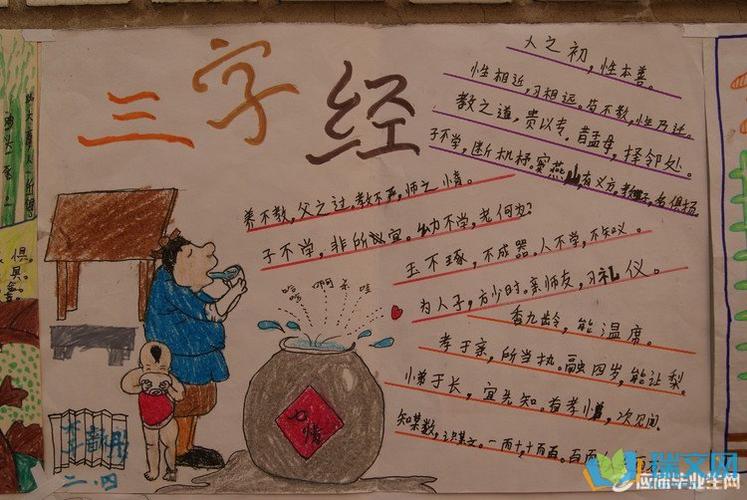 三字经
人之初，性本善。
性相近，习相远。苟不教，性乃迁。
教之道，贵以专。昔孟母，择邻处。
子不学，断机杼。窦燕山，有义方。教五子，名俱扬。
养不教，父之过。教不严，师之惰。
子不学，非所宜。幼不学，老何为？
玉不琢，不成器。人不学，不知义。
为人子，方少时。亲师友，习礼仪。
香九龄，能温席。
孝于亲，所当执。融四岁，能让梨。
弟于长，宜先知。首孝悌，次见闻。
知某数，识某文。一而十，十而百。百而
啊
哇
二.四
俱
瑞文网
应届毕业生网